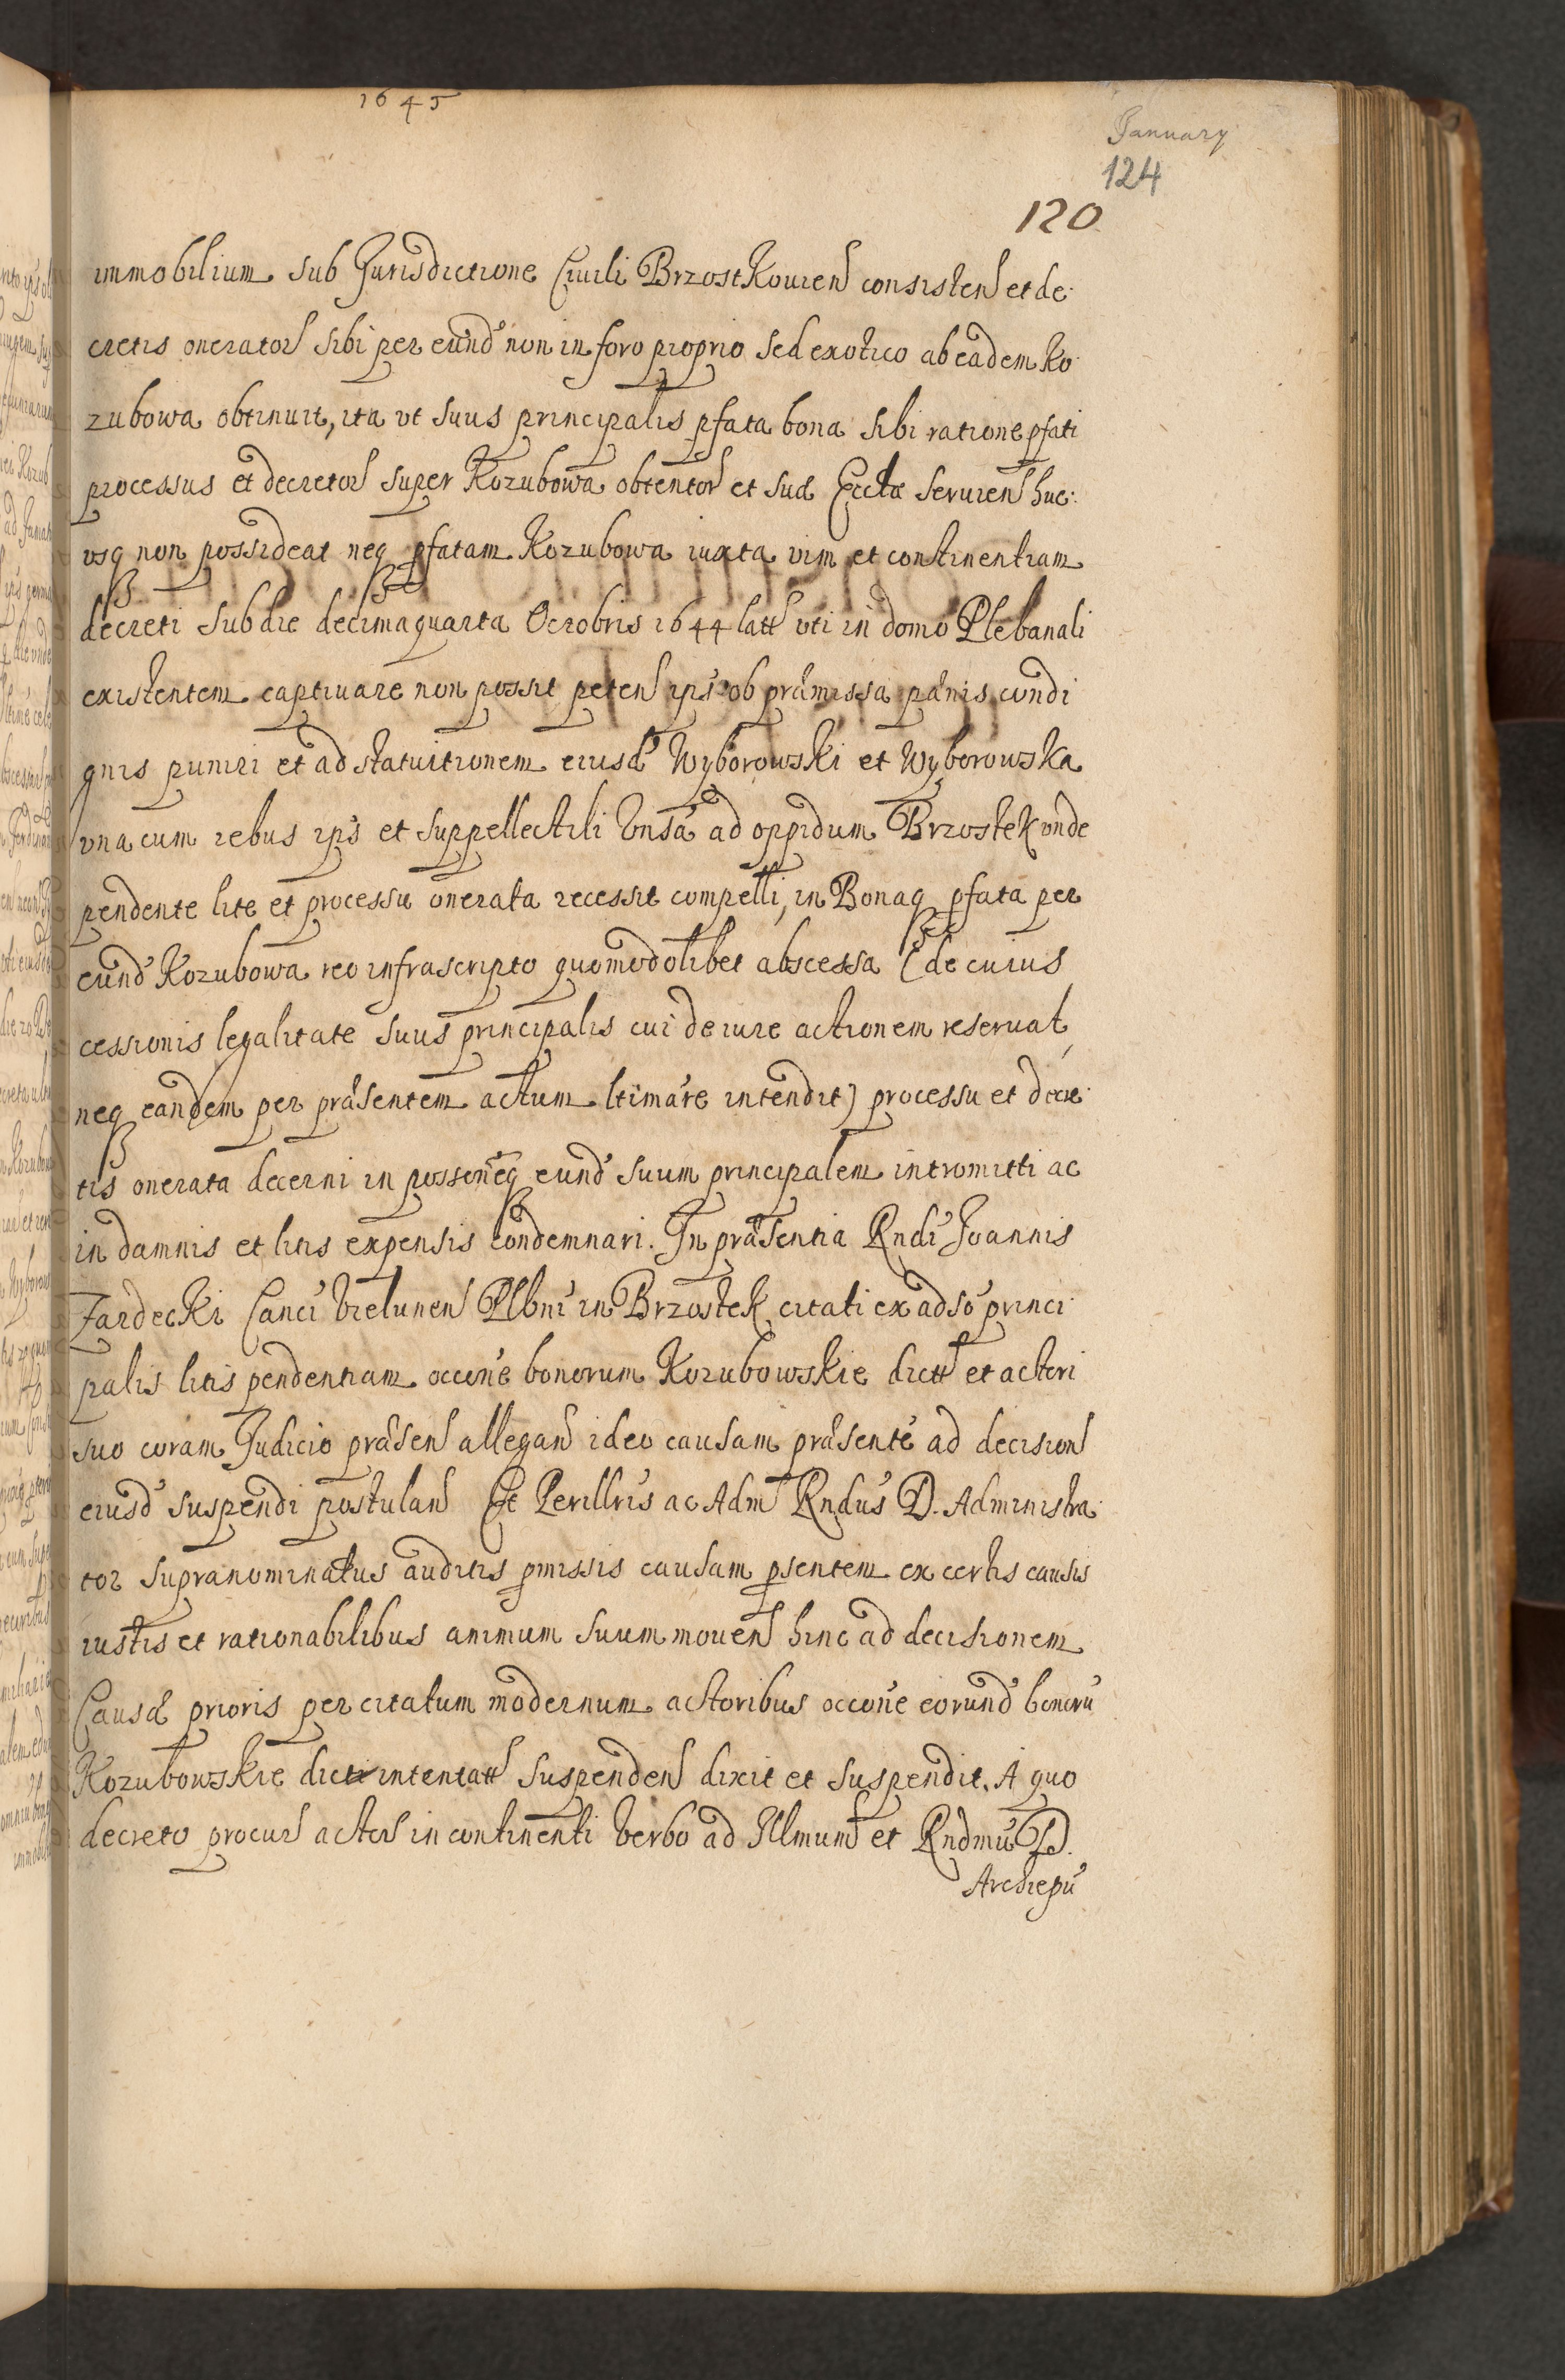 1645
January
124
120
immobilium sub Jurisdictione Ciuili Brzostkouien consisten et de
cretis onerator sibi per eund non in foro proprio sed exotico ab eadem Ko
zubowa obtinuit, ita vt suus principalis pfata bona sibi ratione pfati
processus et decretor super Kozubowa obtentor et suæ Ecclæ seruien huc
vsq non possideat neq pfatam Kozubowa iuxta vim et continentiam
decreti sub die decima quarta Octobris 1644 latt vti in domo Plebanali
existentem captiuare non possit peten ips ob præmissa pænis condi
gnis puniri et ad statuitionem eiusd Wyborowski et Wyborowska
vna cum rebus ips et suppellectili ad oppidum Brzostek vnde
pendente lite et processu onerata recessit compelli, in Bonaq pfata per
eund Kozubowa reo infrascripto quomodolibet abscessa (de cuius
cessionis legalitate suus principalis cui de iure actionem reseruat,
neq eandem per præsentem actum ltimare intendit) processu et decre
tis onerata decerni in possoneq eund suum principalem intromitti ac
in damnis et litis expensis condemnari. In præsentia Rndi Joannis
Zardecki Canci Vielunen Plbni in Brzostek citati ex adso princi
palis litis pendentiam occone bonorum Kozubowskie dictt et actori
suo coram Judicio præsen allegan ideo causam præsente ad decision
eiusd suspendi postulan Et Perillris ac Adm Rndus D. Administra
tor supranominatus auditis pmissis causam psentem ex certis causis
iustis et rationabilibus animum suum mouen hinc ad decisionem
Causæ prioris per citatum modernum actoribus occone eorund bonoru
Kozubowskie dict intentatt suspenden dixit et suspendit. A quo
decreto procur actor in continenti verbo ad Illmum et Rndmu D.
Archiepu